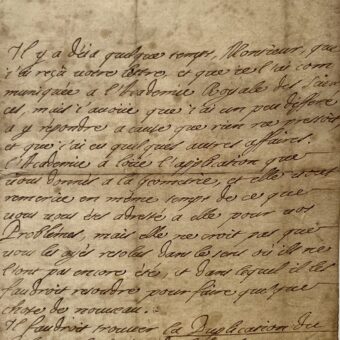 Il y a desia quelque temps, Monsieur, que
j'ai reçû votre lettre, et que je l'ai com
muniquée a l'Academie Royale des Scien
ces, mais j'avoüe que j'ai un peu differé
a y répondre a cause que rien ne pressoit
et que j'ai eu quelques autres affaires.
L'Academie a loüé l'application que
vous donnés a la geometrie, et elle vous
remercie en même temps de ce que
vous vous etes adressé a elle pour vos
Problemes, mais elle ne croit pas que
vous les ayés resolus dans le sens où ils ne
l'ont pas encore eté, et dans lequel il les
faudroit resoudre pour faire quelque
chose de nouveau.
Il faudroit trouver la Duplication du